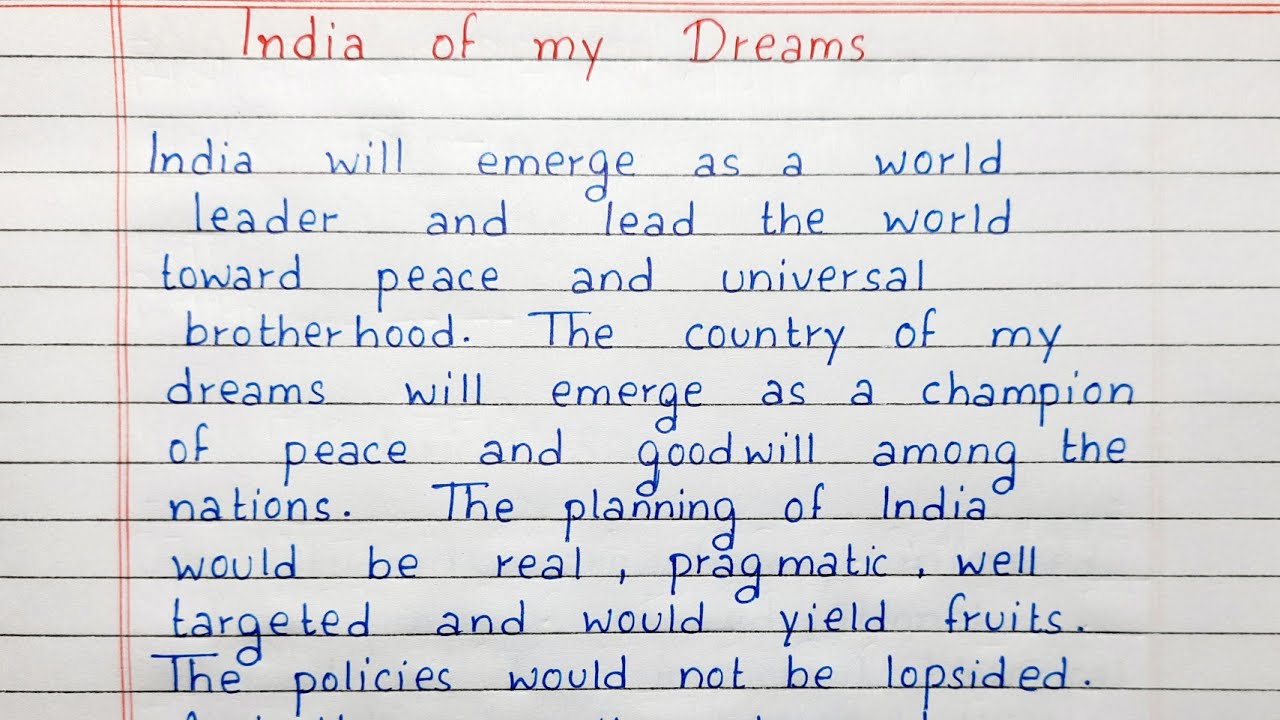 India of my Dreams
India will emerge as a world
leader and lead the world
toward peace and universal
brotherhood. The country of my
dreams will emerge as a champion
of peace and goodwill among the
nations. The planning of India
would be real, pragmatic, well
targeted and would yield fruits.
The policies would not be lopsided.